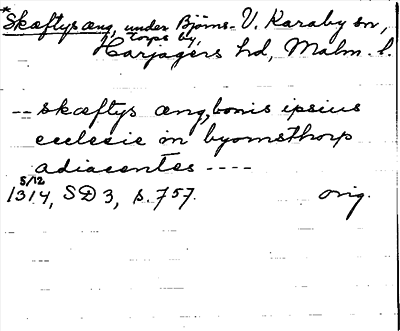 *Skæftys æng, under Björns- V. Karaby sn,
torps by,
Harjagers hd, Malm. l.
-- skæftys æng, bonis ipsius
ecclesie in byornsthorp
adiacentes ----
5/12
1314, SD 3, s. 757. orig.